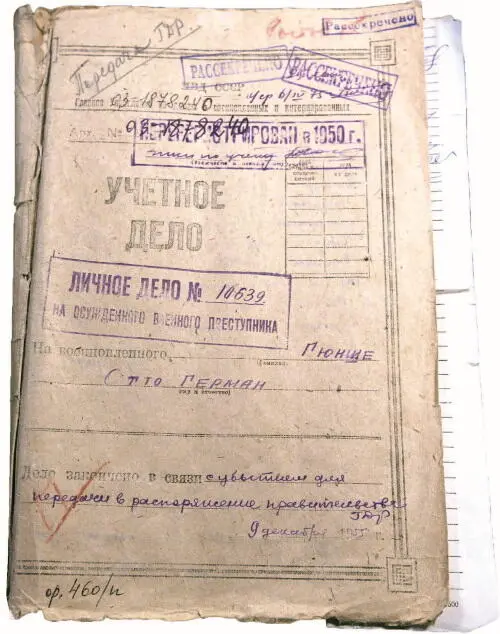 Рассекречено
Передача ГДР.
РАССЕКРЕЧЕНО
РАССЕКРЕЧЕНО
МВД СССР
03-1878240
Арх. №
03-1878240
ПЕРЕРЕГИСТРИРОВАН в 1950 г.
УЧЕТНОЕ
ДЕЛО
ЛИЧНОЕ ДЕЛО № 10639
НА ОСУЖДЕННОГО ВОЕННОГО ПРЕСТУПНИКА
На военнопленного Гюнше
Отто Герман
(имя и отчество)
Дело закончено в связи с убытием для
передачи в распоряжение правительства
ГДР
9 декабря 1955 г.
ор. 460/н